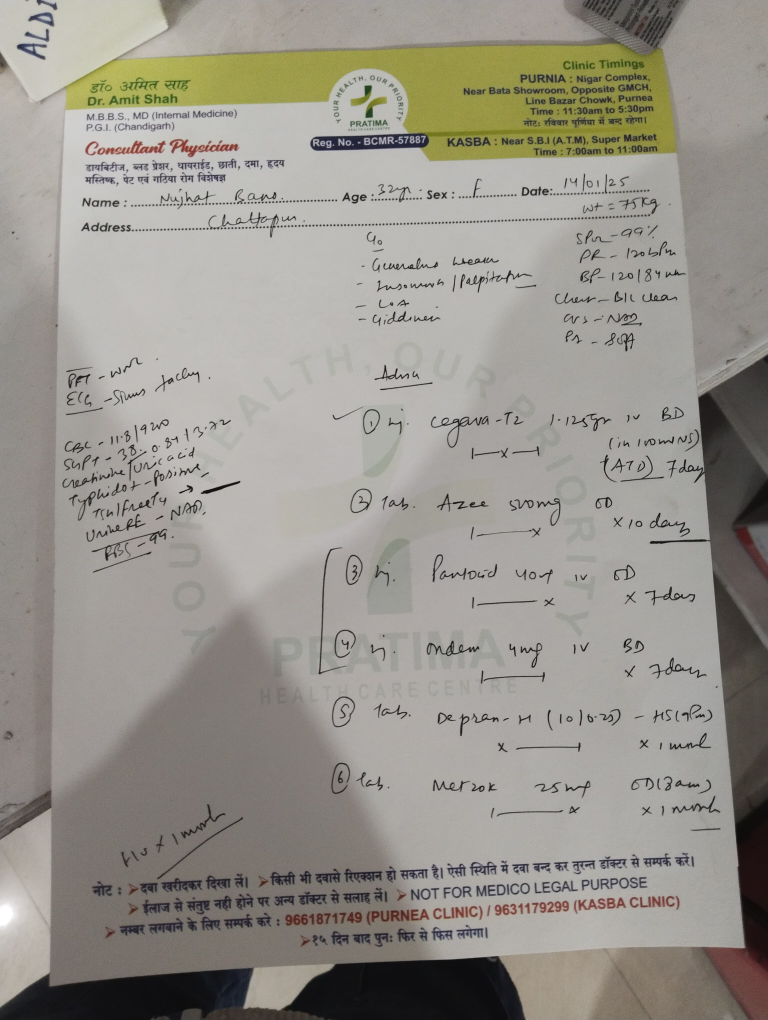 ALDI
डॉ० अमित साह
Dr. Amit Shah
M.B.B.S., MD (Internal Medicine)
P.G.I. (Chandigarh)
Consultant Physician
डायबिटीज, ब्लड प्रेशर, थायराईड, छाती, दमा, हृदय
मस्तिष्क, पेट एवं गठिया रोग विशेषज्ञ
YOUR HEALTH, OUR PRIORITY
PRATIMA
HEALTH CARE CENTRE
Reg. No. - BCMR-57887
Clinic Timings
PURNIA : Nigar Complex,
Near Bata Showroom, Opposite GMCH,
Line Bazar Chowk, Purnea
Time : 11:30am to 5:30pm
नोट: रविवार पूर्णिया में बन्द रहेगा।
KASBA : Near S.B.I (A.T.M), Super Market
Time : 7:00am to 11:00am
Name : Nujhat Bano Age : 32yr Sex : F Date: 14/01/25
Address Chattapur
wt = 75kg
C/o
- Generalised weakness
- Insomnia / Palpitation
- LOA
- Giddiness
SPO2 - 99%
PR - 120bpm
BP - 120/84
Chest - B/L clear
CVS - NAD
P/A - Soft
PFT - WNL
ECG - Sinus tachy.
CBC - 11.8/9200
SGPT - 38 - 0.84/3.72
Creatinine/Uric acid
Typhidot - Positive
TSH/FreeT4 →
Urine RE - NAD
RBS - 99
Advice
① Inj. Cegava-TZ 1.125gm IV BD
(in 100ml NS)
(ATD) 7days
② Tab. Azee 500mg OD
x 10 days
③ Inj. Pantocid 40mg IV OD
x 7days
④ Inj. Ondem 4mg IV BD
x 7days
⑤ Tab. Depran-H (10/0.25) - HS (9pm)
x 1 month
⑥ Tab. Metzok 25mg OD (8am)
x 1 month
F/U x 1 month
YOUR HEALTH, OUR PRIORITY
PRATIMA
HEALTH CARE CENTRE
नोट : ➤ दवा खरीदकर दिखा लें। ➤ किसी भी दवासे रिएक्शन हो सकता है। ऐसी स्थिति में दवा बन्द कर तुरन्त डॉक्टर से सम्पर्क करें।
➤ ईलाज से संतुष्ट नही होने पर अन्य डॉक्टर से सलाह लें। ➤ NOT FOR MEDICO LEGAL PURPOSE
➤ नम्बर लगवाने के लिए सम्पर्क करे : 9661871749 (PURNEA CLINIC) / 9631179299 (KASBA CLINIC)
➤ १५ दिन बाद पुनः फिर से फिस लगेगा।